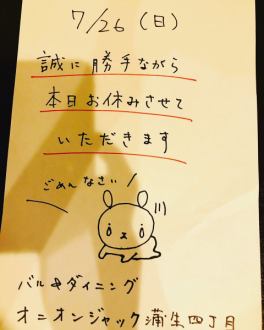 7/26 (日)
誠に勝手ながら
本日お休みさせて
いただきます
ごめんなさい
バル&ダイニング
オニオンジャック蒲生四丁目